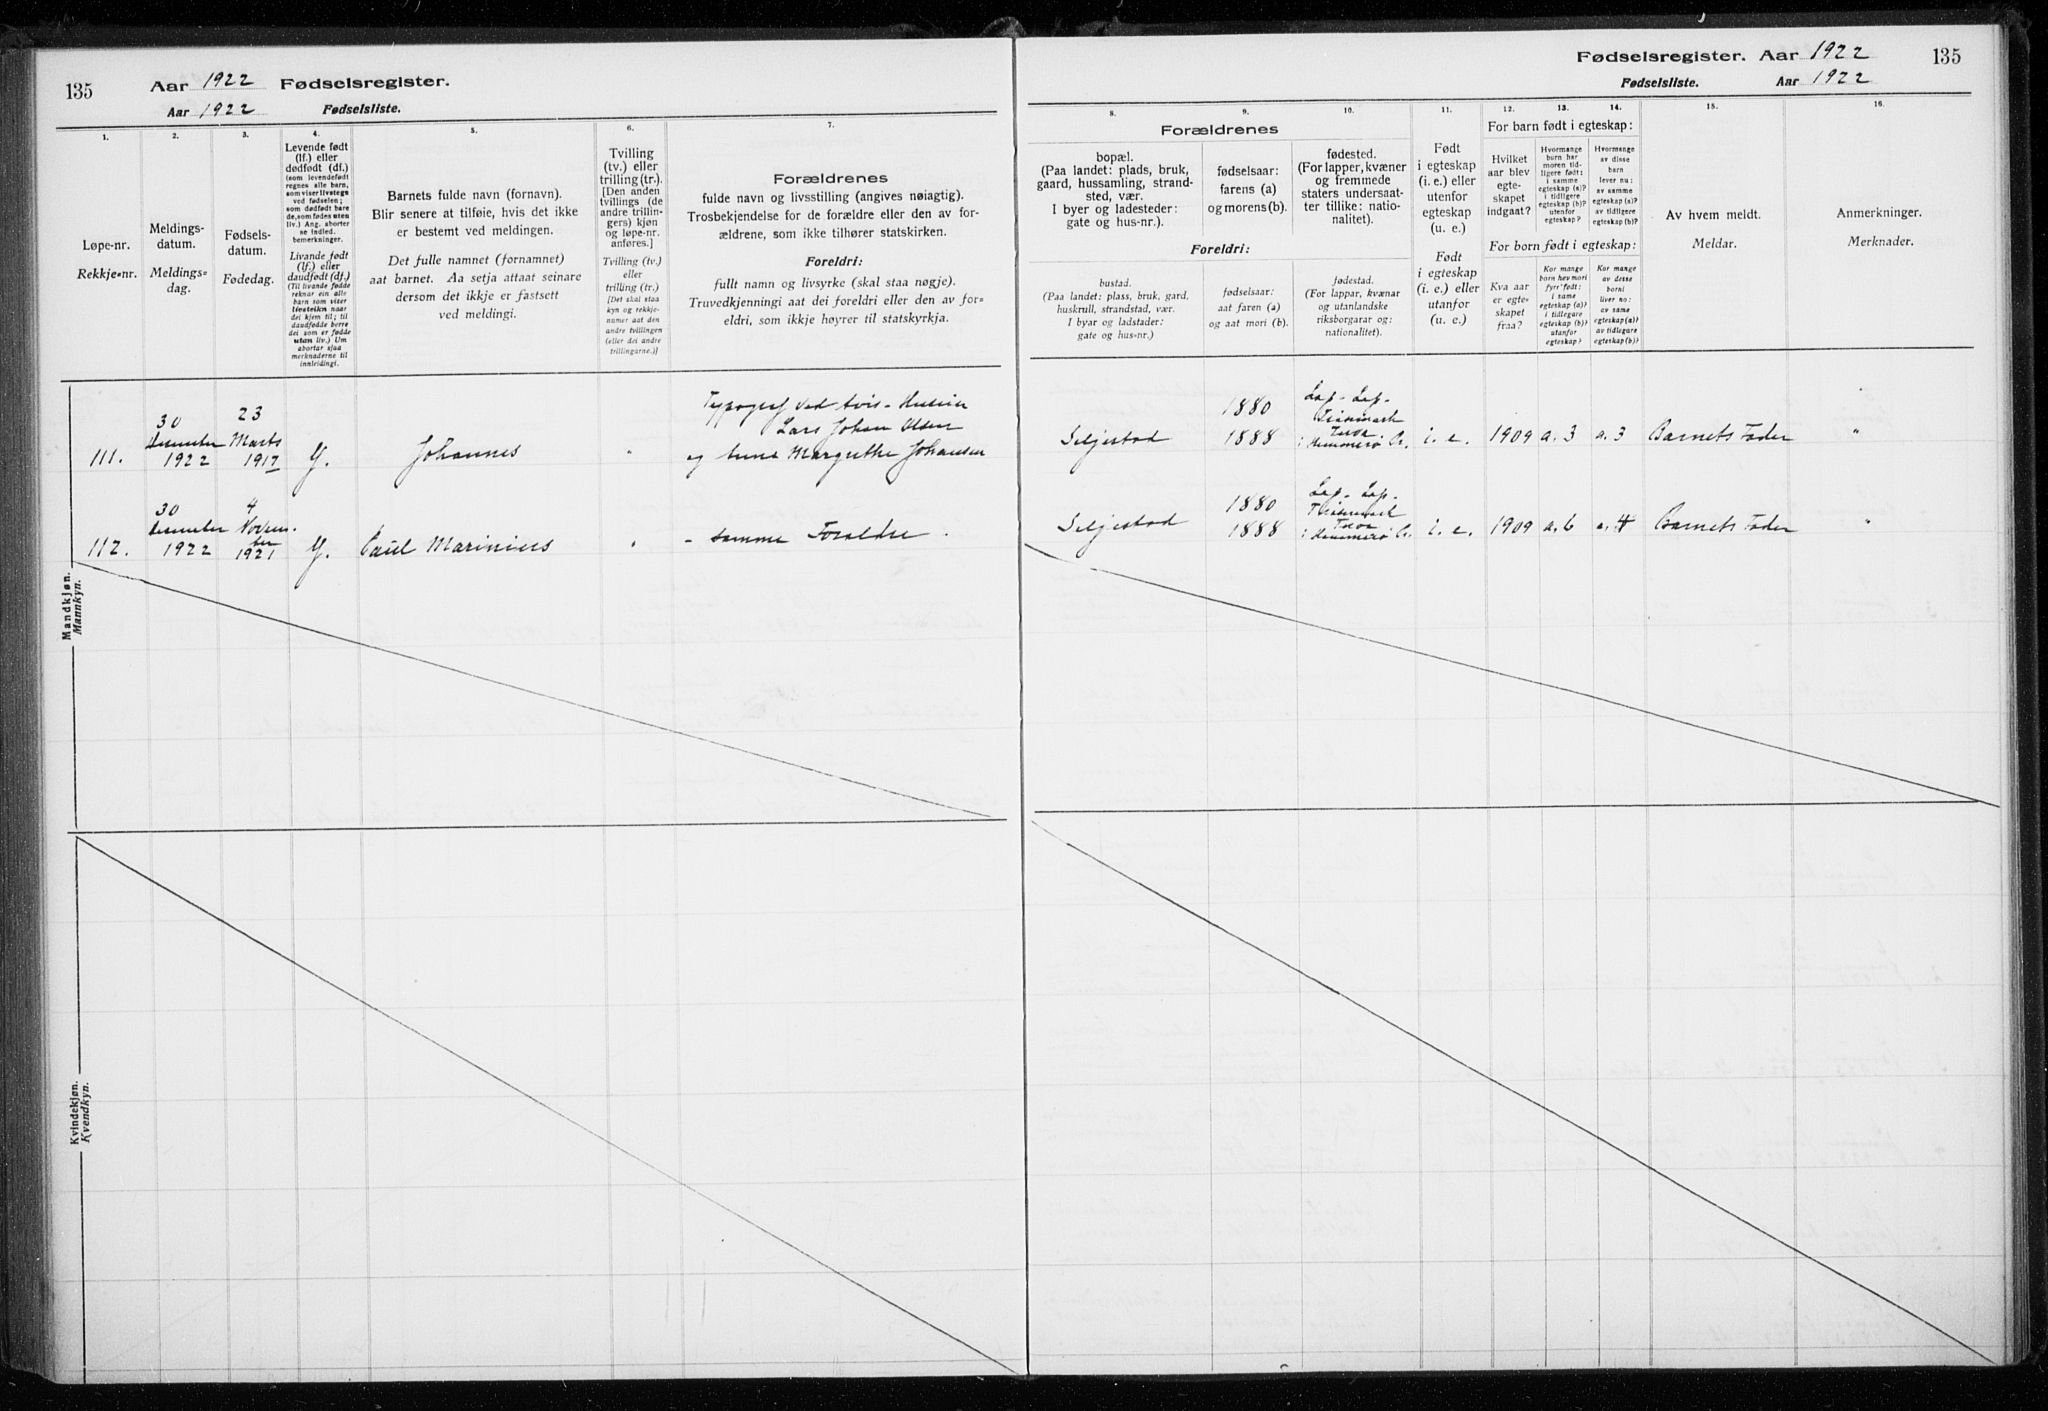 135 Aar 1922 Fødselsregister.
Aar 1922 Fødselsliste.
1. 2. 3. 4. 5. 6. 7.
Løpe-nr.
Rekkje-nr.
Meldings-
datum.
Meldings-
dag.
Fødsels-
datum.
Fødedag.
Levende født
(lf.) eller
dødfødt (df.)
(som levendefødt
regnes alle barn,
som viser livstegn
ved fødselen;
som dødfødt bare
de, som fødes uten
liv.) Ang. aborter
se indled.
bemerkninger.
Livande født
(lf.) eller
daudfødt (df.)
(Til livande fødde
reknar ein alle
barn som viser
livsteikn naar
dei kjem til; til
daudfødde berre
dei som er fødde
utan liv.) Um
abortar sjaa
merknaderne til
innleidingi.
Barnets fulde navn (fornavn).
Blir senere at tilføie, hvis det ikke
er bestemt ved meldingen.
Det fulle namnet (fornamnet)
aat barnet. Aa setja attaat seinare
dersom det ikkje er fastsett
ved meldingi.
Tvilling
(tv.) eller
trilling (tr.).
[Den anden
tvillings (de
andre trillin-
gers) kjøn
og løpe-nr.
anføres.]
Tvilling (tv.)
eller
trilling (tr.)
[Det skal staa
kyn og rekkje-
numer aat den
andre tvillingen
(eller dei andre
trillingarne.)]
Forældrenes
fulde navn og livsstilling (angives nøiagtig).
Trosbekjendelse for de forældre eller den av for-
ældrene, som ikke tilhører statskirken.
Foreldri:
fullt namn og livsyrke (skal staa nøgje).
Truvedkjenningi aat dei foreldri eller den av for-
eldri, som ikkje høyrer til statskyrkja.
Mandkjøn.
Mannkyn.
111.
30
Desember
1922
23
Marts
1917
lf.
Johannes
"
Typograf ved Avis-
Lars Johan Olsen
og Anne Margrethe Johansen
112.
30
Desember
1922
4
Novem-
ber
1921
lf.
Paul Marinius
"
- samme Forældre.
Kvindekjøn.
Kvendkyn.
Fødselsregister. Aar 1922 135
Fødselsliste. Aar 1922
8. 9. 10. 11. 12. 13. 14. 15. 16.
Forældrenes
bopæl.
(Paa landet: plads, bruk,
gaard, hussamling, strand-
sted, vær.
I byer og ladesteder:
gate og hus-nr.).
fødselsaar:
farens (a)
og morens (b).
fødested.
(For lapper, kvæner
og fremmede
staters undersaat-
ter tillike: natio-
nalitet).
Foreldri:
bustad.
(Paa landet: plass, bruk, gard,
huskrull, strandstad, vær.
I byar og ladstader:
gate og hus-nr.)
fødselsaar:
aat faren (a)
og aat mori (b).
fødestad.
(For lappar, kvænar
og utanlandske
riksborgarar og:
nationalitet).
Født
i egteskap
(i. e.) eller
utenfor
egteskap
(u. e.)
Født
i egteskap
(i. e.) eller
utanfor
(u. e.)
For barn født i egteskap:
Hvilket
aar blev
egte-
skapet
indgaat?
Hvormange
barn har
moren tid-
ligere født:
i samme
egteskap (a)?
i tidligere
egteskap (b)?
utenfor
egteskap?
Hvormange
av disse
barn
lever nu:
av samme
egteskap (a)?
av tidligere
egteskap (b)?
For born født i egteskap:
Kva aar
er egte-
skapet
fraa?
Kor mange
born hev mori
fyrr født:
i same
egteskap (a)?
i tidlegare
egteskap (b)?
utanfor
egteskap?
Kor mange
av desse
borni
liver no:
av same
egteskap (a)?
av tidlegare
egteskap (b)?
Av hvem meldt.
Meldar.
Anmerkninger.
Merknader.
Seljestad
1880
1888
Lap - Lap -
i Hammerø Pr.
i. e.
1909
a. 3
a. 3
Barnets Fader
"
Seljestad
1880
1888
Lap - Lap -
i Hammerø Pr.
i. e.
1909
a. 6
a. 4
Barnets Fader
"